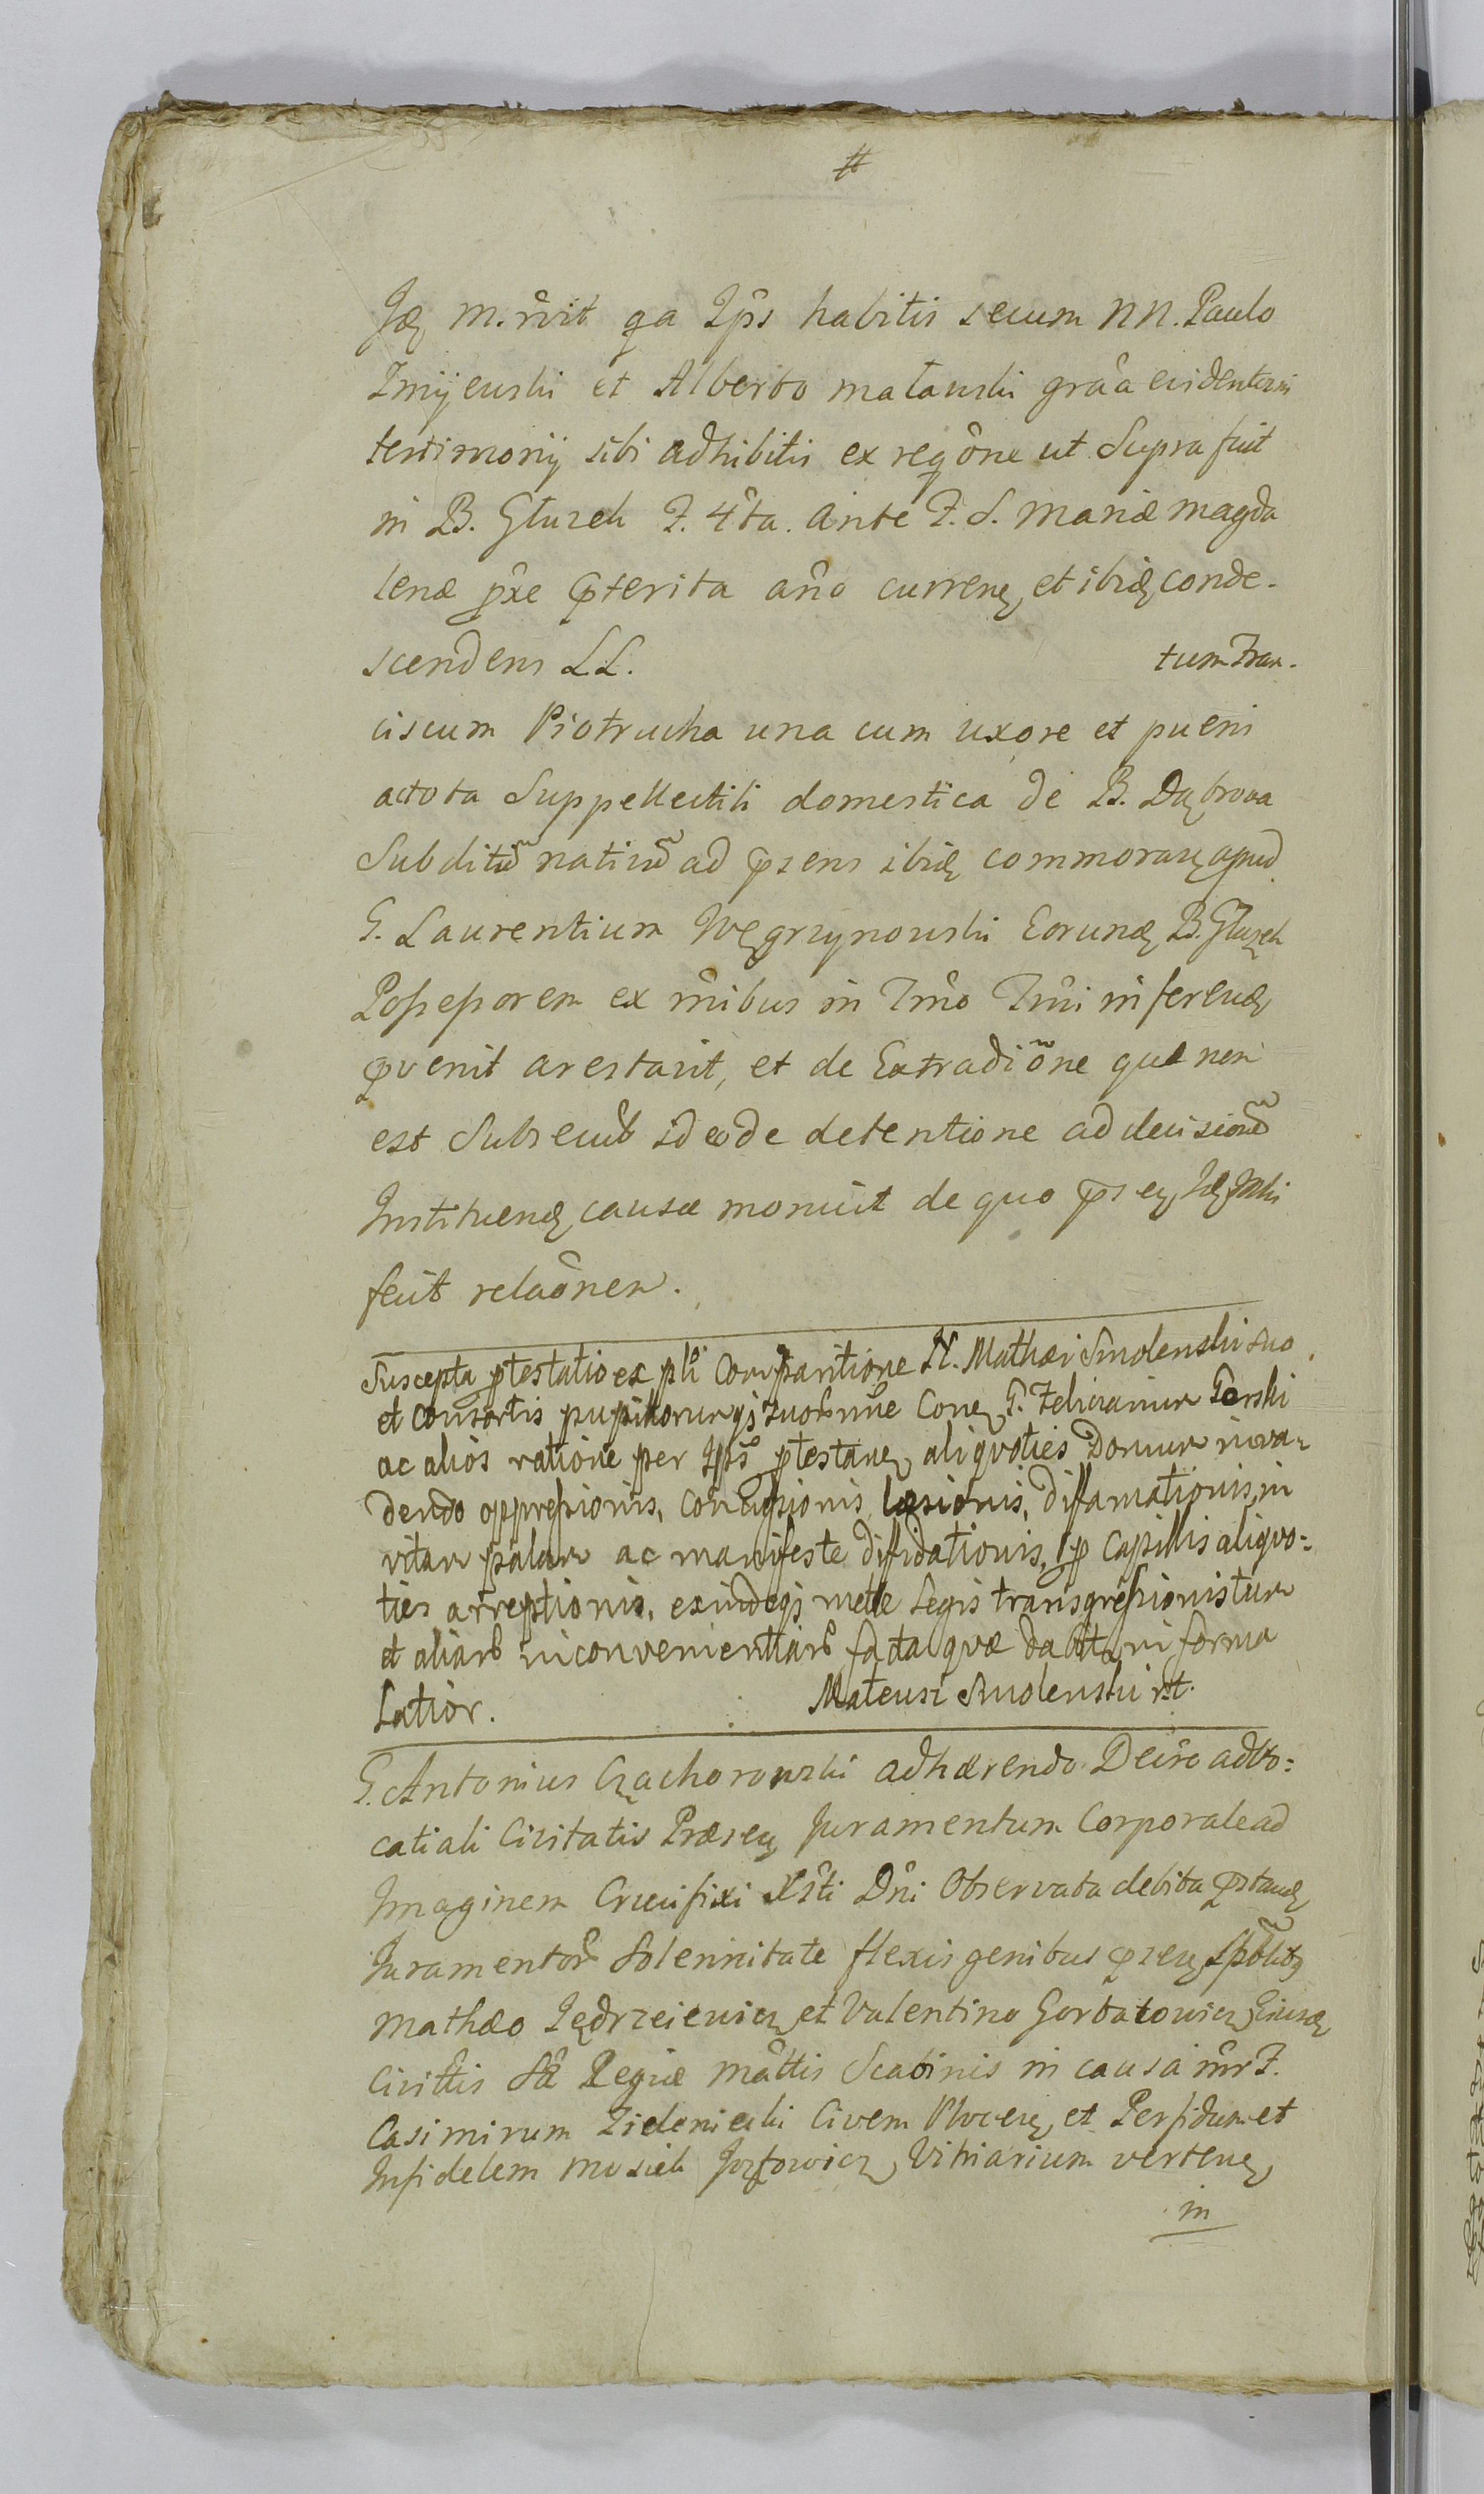 #
m. rṽit qa Ips habitis secum NN. Paulo
Zmijewski et Alberto Matauski grãa evidentioris
testimonij sibi adhibitis ex reqõne ut Supra fuit
in B. Gluzek F. 4ta. ante F. S. Mariæ Magda
lenæ pxe pterita año curren, et ibid, conde-
scendens LL. tum Fran-
ciscum Piotrucha una cum uxore et pueris
ac tota Suppellectili domestica de B. Dąbrowa
Subditũ nativũ ad psens ibid, commoran, apud
G. Laurentium Węgrzynowski Eorund, B. Gluzek
Possessorem ex mibus in Tmo Tmi inferend,
pvenit arestavit, et de Extradiõne quæ non
est Subsecut ideo de detentione ad decisionẽ
Instituend, causæ monuit de quo psen,
fecit relaõnem.
Suscepta ptestatio ex pli Comparitione N. Mathæi Smolenski suo
et consortis pupillorumqȝ suor nñe Con, G. Felicianum Gorski
ac alios ratione per Ips ptestan, aliquoties Domum inva-
dendo oppressionis, concussionis, læsionis, diffamationis, in
vitam palam ac manifeste diffidationis, p Capillis aliquo:
ties arreptionis, exindeqȝ metæ Legis transgressionis tum
et aliar inconvenientiar facta quæ dabitur in forma
Latior. Mateusz Smolenski
G. Antonius Czachorowski adhærendo Decro advo:
catiali Civitatis Præsen, Juramentum Corporale ad
Imaginem Crucifixi Xsti Dñi Observata debita pstand,
Juramentor Solennitate flexis genibus psen,
Mathæo Jędrzeiewicz et Valentino Gorbatowicz Eiusd,
Civittis SR Regiæ Mattis Scabinis in causa inr F.
Casimirum Zieleniecki Civem Plocen, et Perfidum et
Infidelem Mosiek Jozfowicz, Vitriarium verten,
in